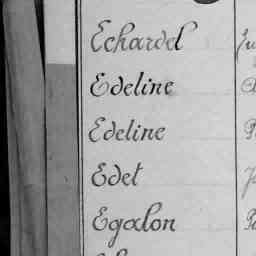 Echardel
Edeline
Edeline
Edet
Egalon